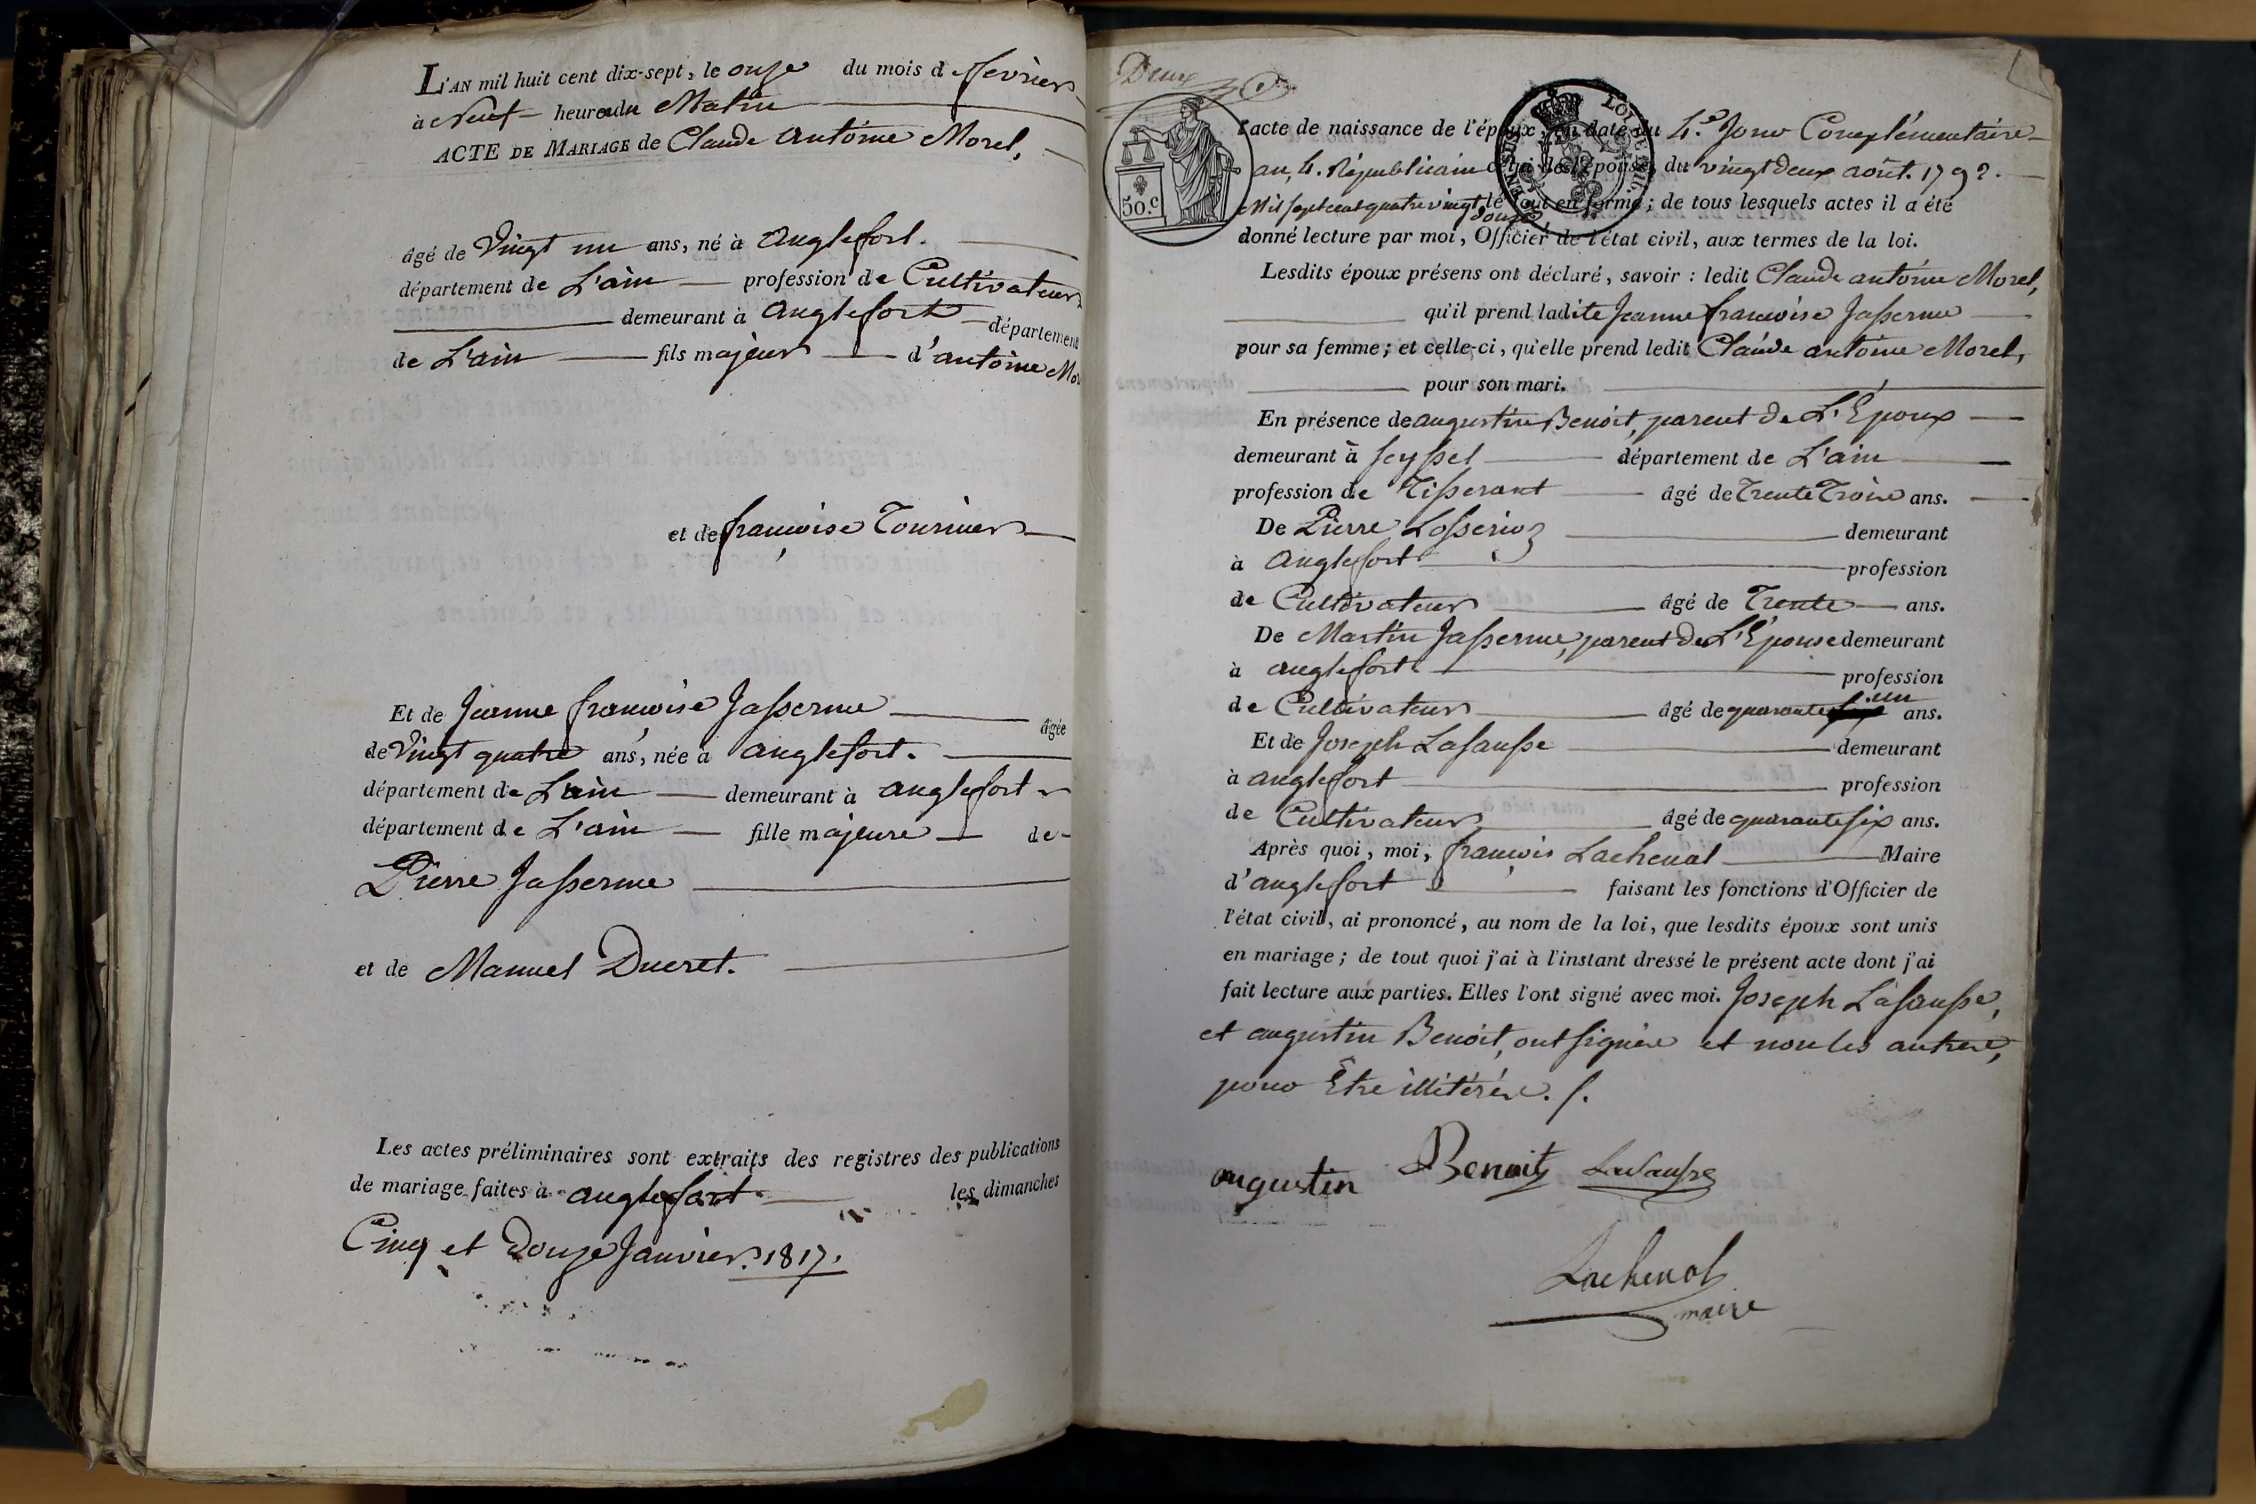 L'AN mil huit cent dix-sept, le onze du mois d fevrier
à neuf heures du Matin
ACTE DE MARIAGE de Claude antoine Morel,
âgé de Vingt un ans, né à anglefort.
département de L'ain profession de Cultivateur
demeurant à anglefort département
de L'ain fils majeur d'antoine Mor
et de françoise Tournier
Et de Jeanne françoise Jasserme âgée
de Vingt quatre ans, née à anglefort.
département de L'ain demeurant à anglefort
département de L'ain fille majeure de
Pierre Jasserme
et de Manuel Ducret.
Les actes préliminaires sont extraits des registres des publications
de mariage faites à anglefort les dimanches
Cinq et Douze Janvier. 1817.
Deux
50.c
l'acte de naissance de l'époux, en date du 4.e Jour Complémentaire
an, 4. Républicain celui de l'épouse, du vingt deux août. 1792.
Mil sept cent quatre vingt douze, le tout en forme; de tous lesquels actes il a été
donné lecture par moi, Officier de l'état civil, aux termes de la loi.
Lesdits époux présens ont déclaré, savoir : ledit Claude antoine Morel,
qu'il prend ladite Jeanne françoise Jasserme
pour sa femme; et celle-ci, qu'elle prend ledit Claude antoine Morel,
pour son mari.
En présence de augustin Benoit, parent de L'Epoux
demeurant à Seyssel département de L'ain
profession de Tisserant âgé de Trente Trois ans.
De Pierre Losserioz demeurant
à anglefort profession
de Cultivateur âgé de Trente ans.
De Martin Jasserme, parent de L'Epouse demeurant
à anglefort profession
de Cultivateur âgé de quarante un ans.
Et de Joseph Lasausse demeurant
à anglefort profession
de Cultivateur âgé de quarante six ans.
Après quoi, moi, françois Lachenal Maire
d'anglefort faisant les fonctions d'Officier de
l'état civil, ai prononcé, au nom de la loi, que lesdits époux sont unis
en mariage; de tout quoi j'ai à l'instant dressé le présent acte dont j'ai
fait lecture aux parties. Elles l'ont signé avec moi. Joseph Lasausse,
et augustin Benoit, ont signés et non les autres,
pour Être illitérés. /.
augustin Benoit Lasausse
Lachenal
maire